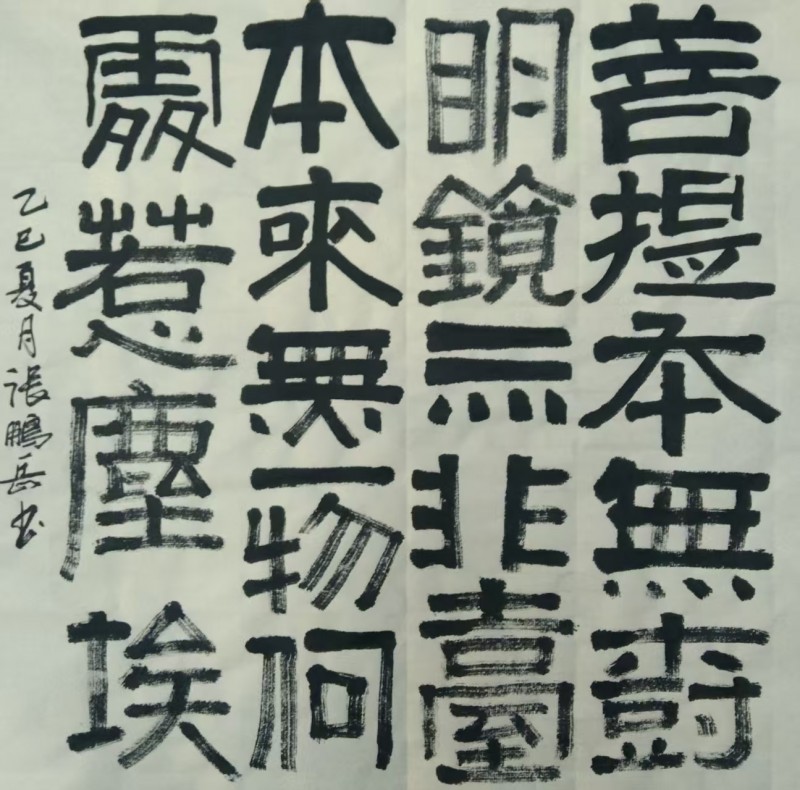 菩提本無樹
明鏡亦非臺
本來無一物何
處惹塵埃
乙巳夏月張鵬岳书